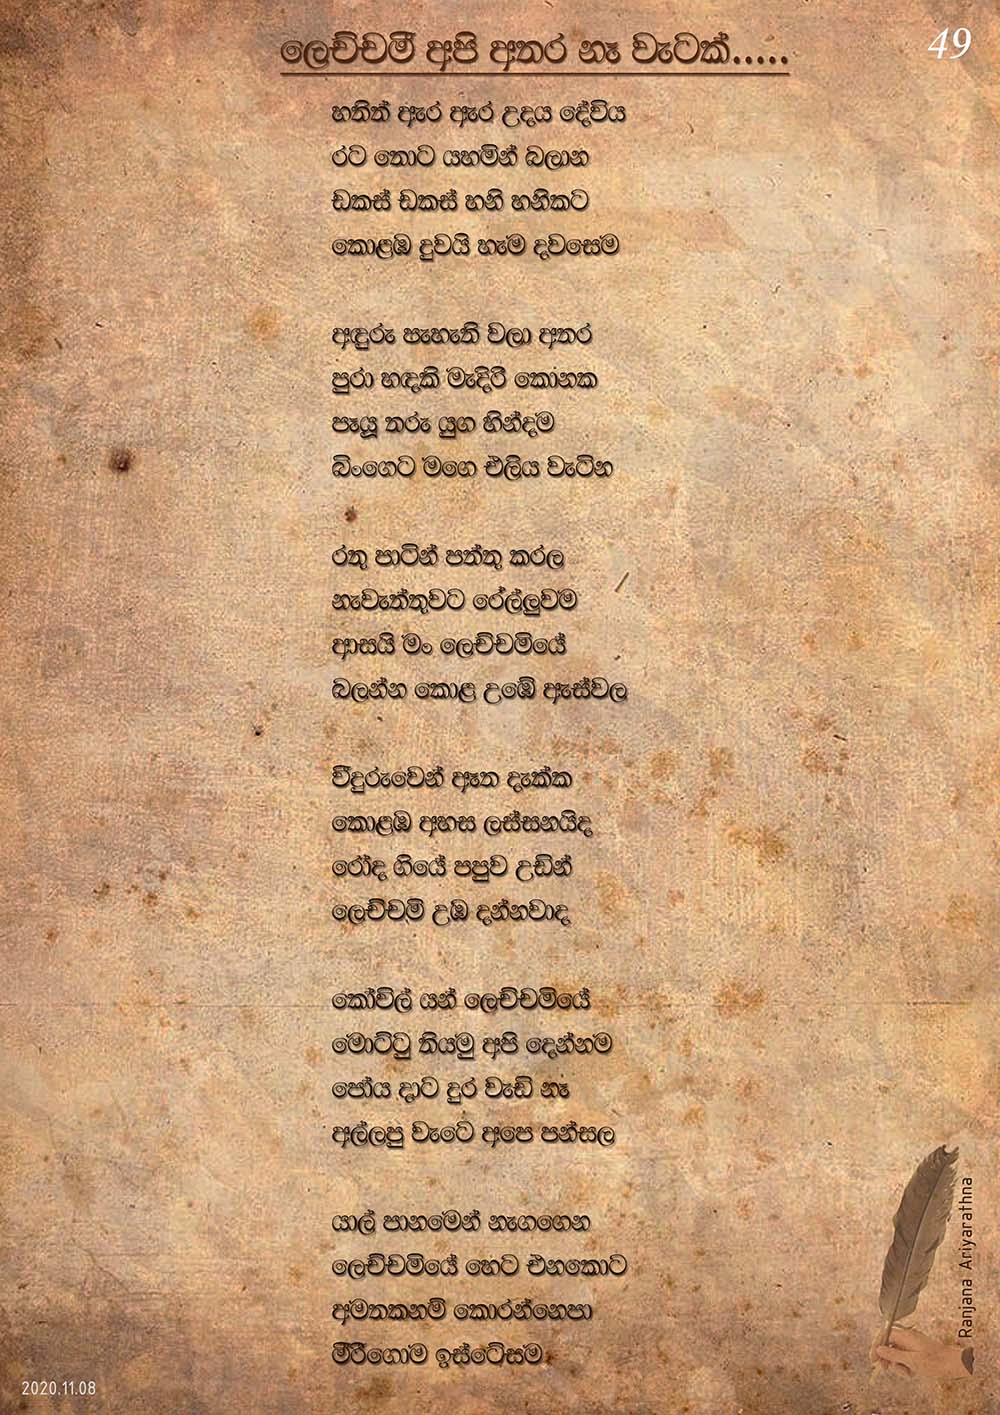 ලෙච්චමී අපි අතර නෑ වැටක්.....
49
හතිත් ඇර ඇර උදය දේවිය
රට තොට යහමින් බලාන
ඩකස් ඩකස් හනි හනිකට
කොළඹ දුවයි හැම දවසෙම
අඳුරු පැහැති වලා අතර
පුරා හඳකි මැදිරි කොනක
පෑයූ තරු යුග හින්දම
බිංගෙට මගෙ එලිය වැටින
රතු පාටින් පත්තු කරල
නැවැත්තුවට රේල්ලුවම
ආසයි මං ලෙච්චමියේ
බලන්න කොළ උඹේ ඇස්වල
වීදුරුවෙන් ඈත දැක්ක
කොළඹ අහස ලස්සනයිද
රෝද ගියේ පපුව උඩින්
ලෙච්චමි උඹ දන්නවාද
කෝවිල් යන් ලෙච්චමියේ
මොට්ටු තියමු අපි දෙන්නම
පෝය දාට දුර වැඩි නෑ
අල්ලපු වැටේ අපෙ පන්සල
යාල් පානමෙන් නැගගෙන
ලෙච්චමියේ හෙට එනකොට
අමතකනම් කොරන්නෙපා
මීරිගොම ඉස්ටේසම
Ranjana Ariyarathna
2020.11.08